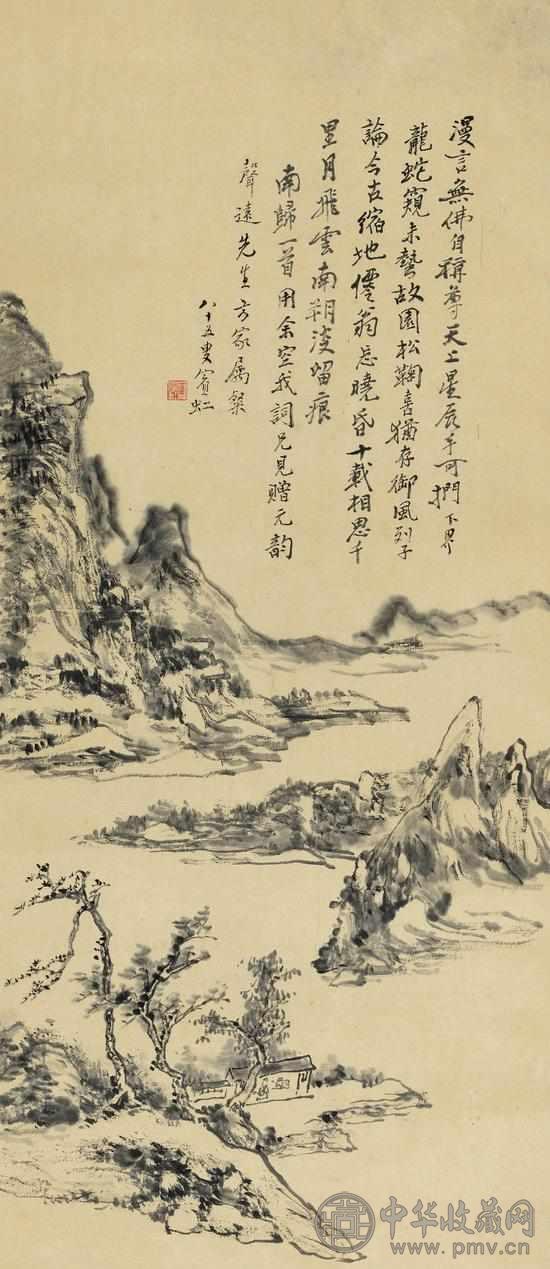 漫言無佛自稱尊天上星辰手可捫下界
龍蛇窺未蟄故園松鞠喜猶存御風列子
論今古縮地僊翁忘曉昏十載相思千
里月飛雲南朔沒留痕
南歸一首用余空我詞兄見贈元韵
聲遠先生方家屬粲
八十五叟賓虹
中华收藏网
www.pmv.cn